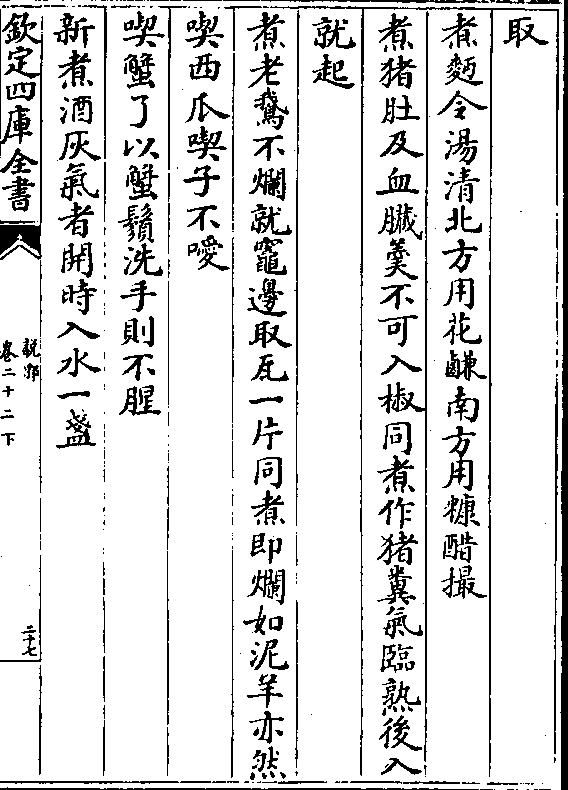 取
煮麪令湯清北方用花鹻南方用糠醋撮
煮猪肚及血臟羮不可入椒同煮作猪糞氣臨熟後入
就起
煮老鵞不爛就竈邊取瓦一片同煮即爛如泥羊亦然
喫西瓜喫子不噯
喫蟹了以蟹鬚洗手則不腥
新煮酒灰氣者開時入水一盞
欽定四庫全書
說郛
卷二十二下
二十七